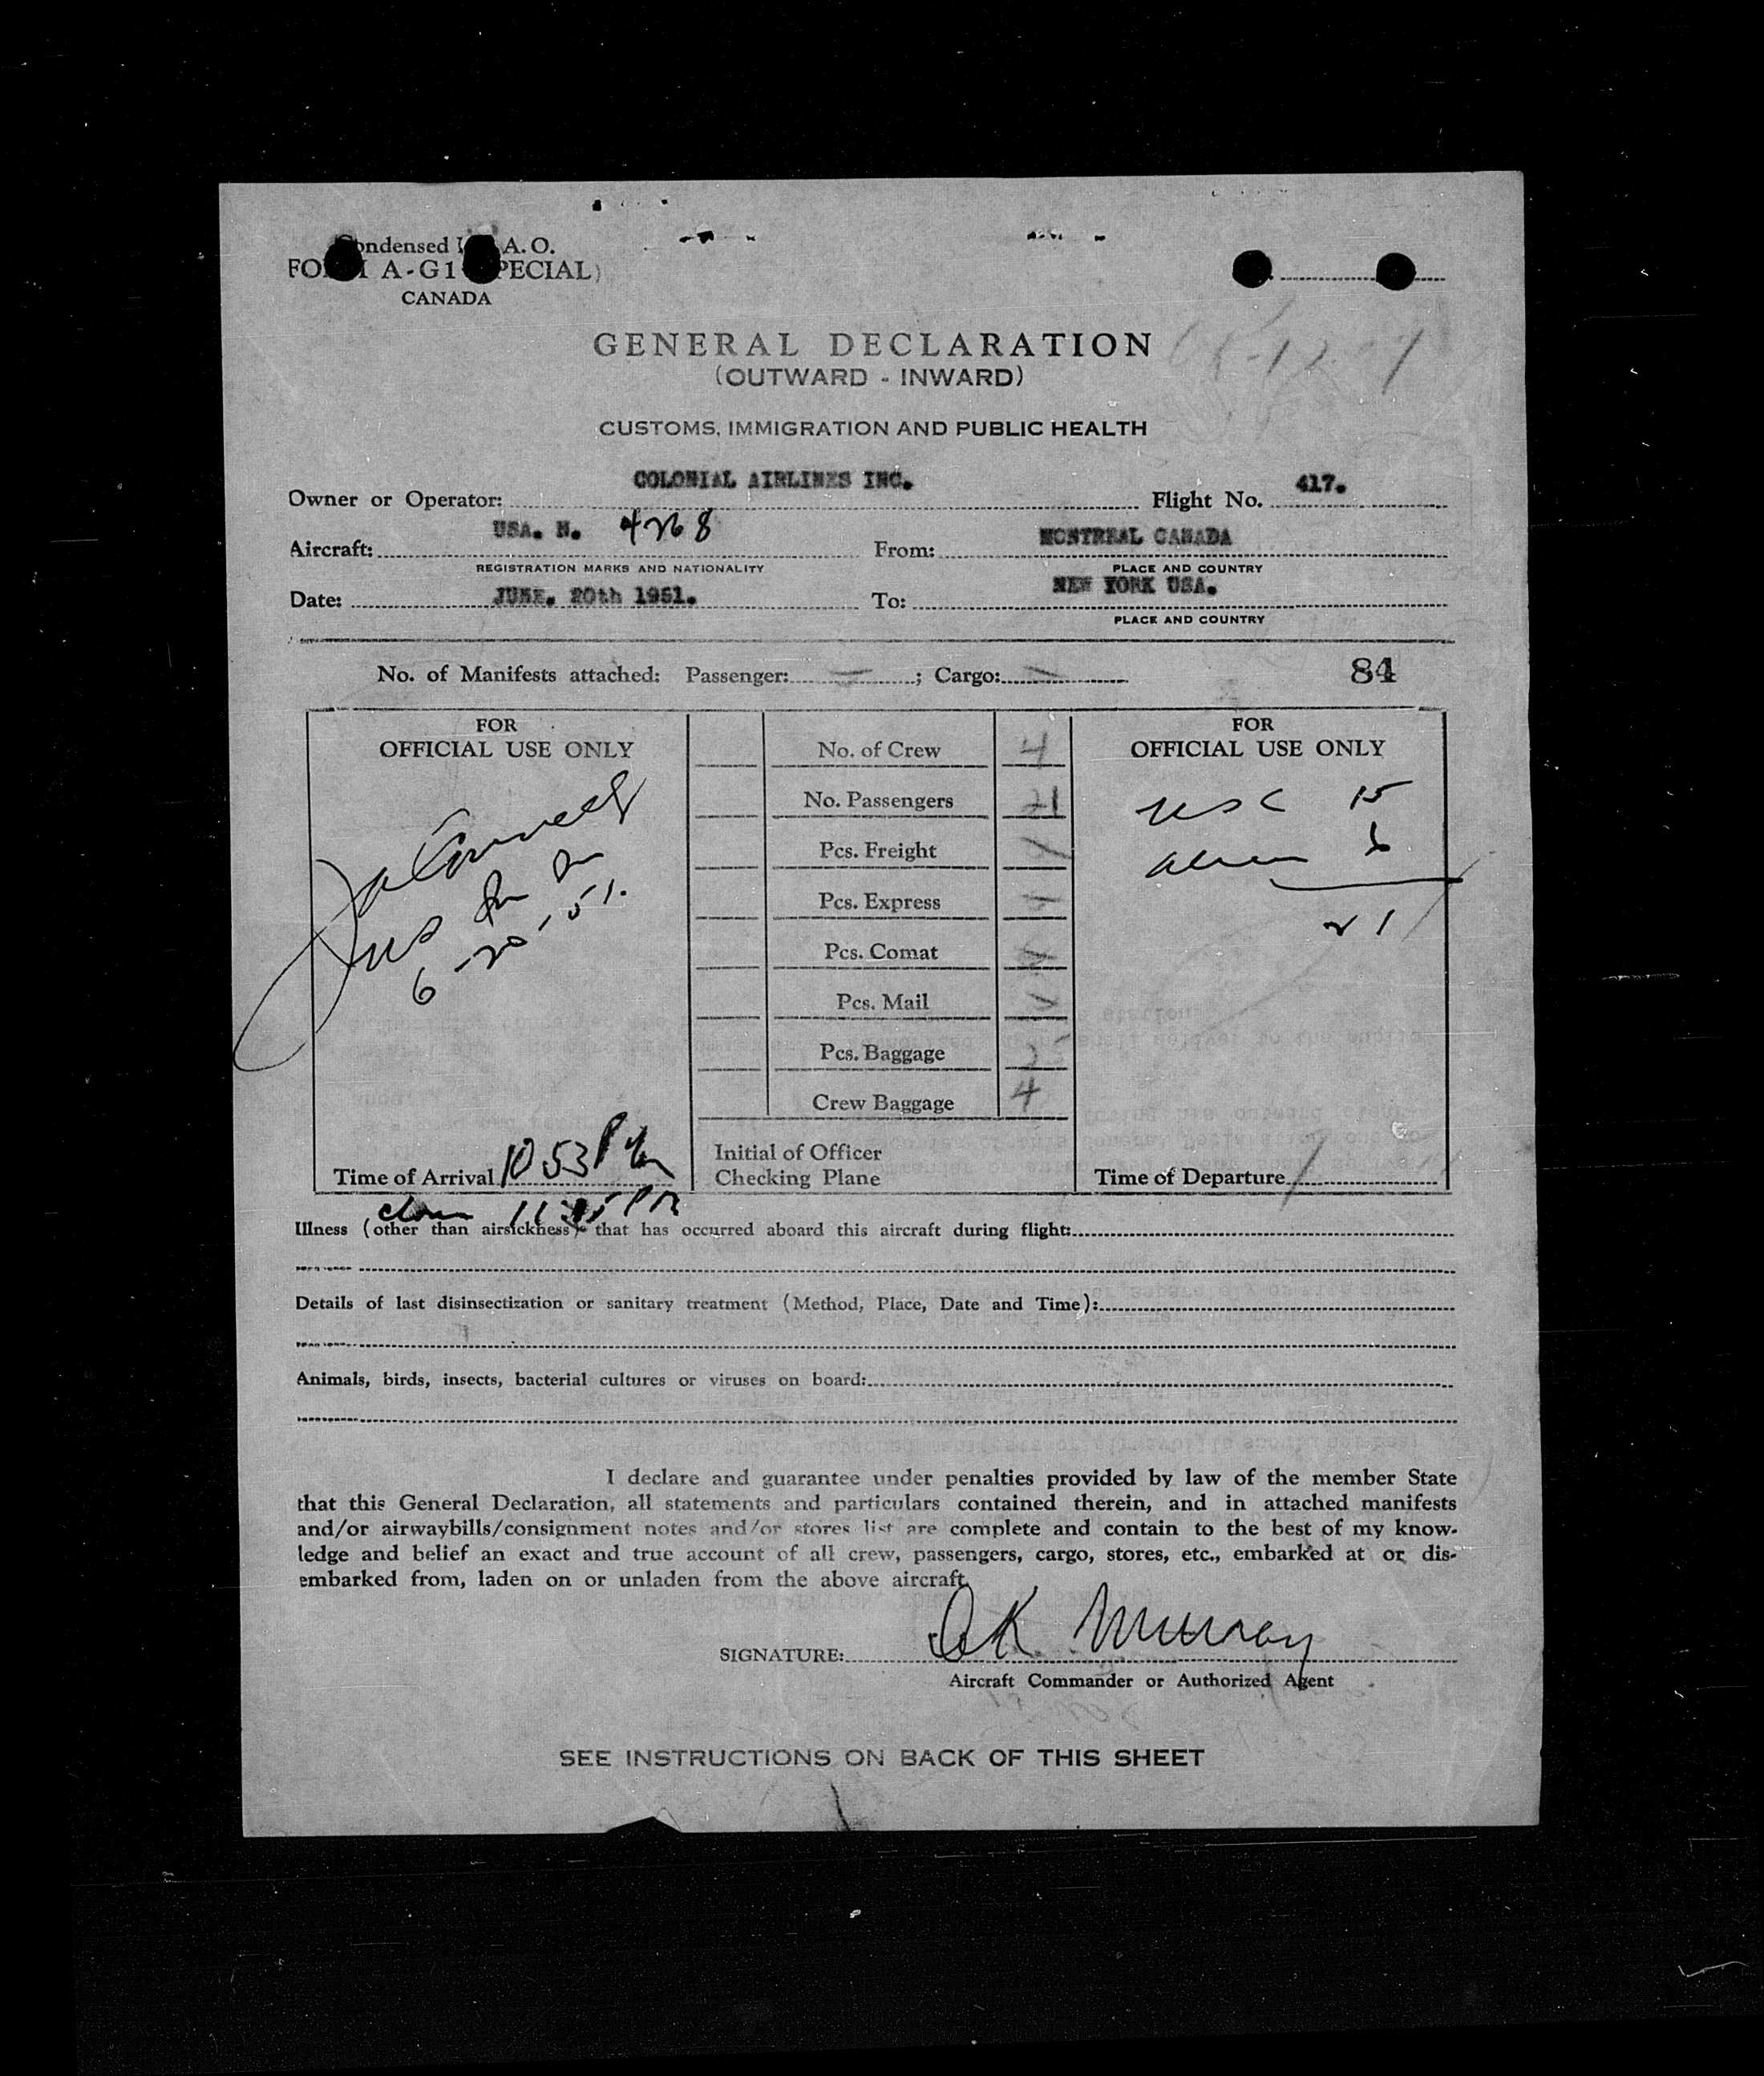 Condensed I A. O.
FORM A-G1 (SPECIAL)
CANADA
GENERAL DECLARATION
(OUTWARD - INWARD)
CUSTOMS, IMMIGRATION AND PUBLIC HEALTH
Owner or Operator: COLONIAL AIRLINES INC. Flight No. 417.
Aircraft: USA. N. 4268 From: MONTREAL CANADA
REGISTRATION MARKS AND NATIONALITY PLACE AND COUNTRY
Date: JUNE. 20th 1951. To: NEW YORK USA.
PLACE AND COUNTRY
No. of Manifests attached: Passenger: ; Cargo: 84
FOR
OFFICIAL USE ONLY
6-20-51.
Time of Arrival 10 53 PM
No. of Crew 4
No. Passengers 21
Pcs. Freight
Pcs. Express
Pcs. Comat
Pcs. Mail
Pcs. Baggage
Crew Baggage 4
Initial of Officer
Checking Plane
FOR
OFFICIAL USE ONLY
USC 15
Alien 6
21
Time of Departure
Illness (other than airsickness) that has occurred aboard this aircraft during flight:
Details of last disinsectization or sanitary treatment (Method, Place, Date and Time):
Animals, birds, insects, bacterial cultures or viruses on board:
I declare and guarantee under penalties provided by law of the member State
that this General Declaration, all statements and particulars contained therein, and in attached manifests
and/or airwaybills/consignment notes and/or stores list are complete and contain to the best of my know-
ledge and belief an exact and true account of all crew, passengers, cargo, stores, etc., embarked at or dis-
embarked from, laden on or unladen from the above aircraft.
SIGNATURE: OK Murray
Aircraft Commander or Authorized Agent
SEE INSTRUCTIONS ON BACK OF THIS SHEET